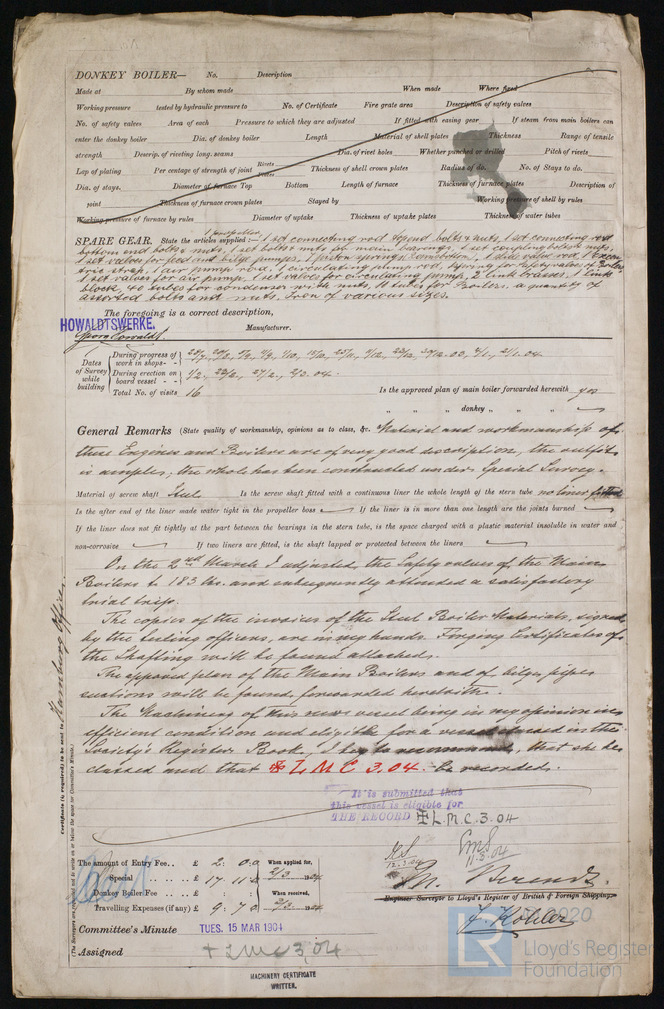 DONKEY BOILER— No. Description
Made at By whom made When made Where fixed
Working pressure tested by hydraulic pressure to No. of Certificate Fire grate area Description of safety valves
No. of safety valves Area of each Pressure to which they are adjusted If fitted with easing gear If steam from main boilers can
enter the donkey boiler Dia. of donkey boiler Length Material of shell plates Thickness Range of tensile
strength Descrip. of riveting long. seams Dia. of rivet holes Whether punched or drilled Pitch of rivets
Lap of plating Per centage of strength of joint Rivets Plates Thickness of shell crown plates Radius of do. No. of Stays to do.
Dia. of stays. Diameter of furnace Top Bottom Length of furnace Thickness of furnace plates Description of
joint Thickness of furnace crown plates Stayed by Working pressure of shell by rules
Working pressure of furnace by rules Diameter of uptake Thickness of uptake plates Thickness of water tubes
SPARE GEAR. State the articles supplied:— 1 propeller, 1 set connecting rod top end bolts & nuts, 1 set connecting rod
bottom end bolts & nuts, 1 set bolts & nuts for main bearings, 1 set coupling bolts & nuts,
1 set valves for feed and bilge pumps, 1 piston springs, 1 slide valve rod, 1 Eccen
tric strap, 1 air pump rod, 1 circulating pump rod, springs for safety valves of Boilers
1 set valves for air pump, 1 set valves for circulating pump, 2 link brasses, 1 link
block, 40 tubes for condenser with nuts, 11 tubes for Boilers. a quantity of
assorted bolts and nuts. Iron of various sizes.
The foregoing is a correct description,
HOWALDTSWERKE.
Georg Howaldt. Manufacturer.
Dates of Survey while building
During progress of work in shops - -
During erection on board vessel - - 1/2, 22/2, 27/2, 2/3. 04.
Total No. of visits 16
Is the approved plan of main boiler forwarded herewith yes
" " " donkey " " "
General Remarks (State quality of workmanship, opinions as to class, &c. Material and workmanship of
these Engines and Boilers are of very good description, the outfit
is ample, the whole has been constructed under Special Survey.
Material of screw shaft Steel Is the screw shaft fitted with a continuous liner the whole length of the stern tube no liner fitted
Is the after end of the liner made water tight in the propeller boss If the liner is in more than one length are the joints burned
If the liner does not fit tightly at the part between the bearings in the stern tube, is the space charged with a plastic material insoluble in water and
non-corrosive If two liners are fitted, is the shaft lapped or protected between the liners
On the 2nd March I adjusted the Safety valves of the Main
Boilers to 183 lbs. and subsequently attended a satisfactory
trial trip.
The copies of the invoices of the Steel Boiler Materials, signed
by the testing officers, are in my hands. Forging Certificates of
the Shafting will be found attached.
The approved plan of the Main Boilers and of bilge pipes
suctions will be found, forwarded herewith.
The Machinery of this new vessel being in my opinion in
efficient condition and eligible for a vessel classed in the
Society's Register Book, I beg to recommend, that she be
classed and that ✠ L.M.C 3.04. be recorded.
It is submitted that
this vessel is eligible for
THE RECORD ✠ L.M.C. 3.04
Certificate (if required) to be sent to Hamburg Office.
The amount of Entry Fee.. £ 2: 0.0 When applied for,
Special .. .. .. £ 17 11. 2/3. 1904
Donkey Boiler Fee .. .. £ When received,
Travelling Expenses (if any) £ 9. 7.0 1904
11.3.04
M. Berendt.
Engineer Surveyor to Lloyd's Register of British & Foreign Shipping.
J. Köhler
Committee's Minute TUES. 15 MAR 1904
Assigned + LMC 3,04
MACHINERY CERTIFICATE
WRITTEN.
2020
LR
Lloyd's Register
Foundation